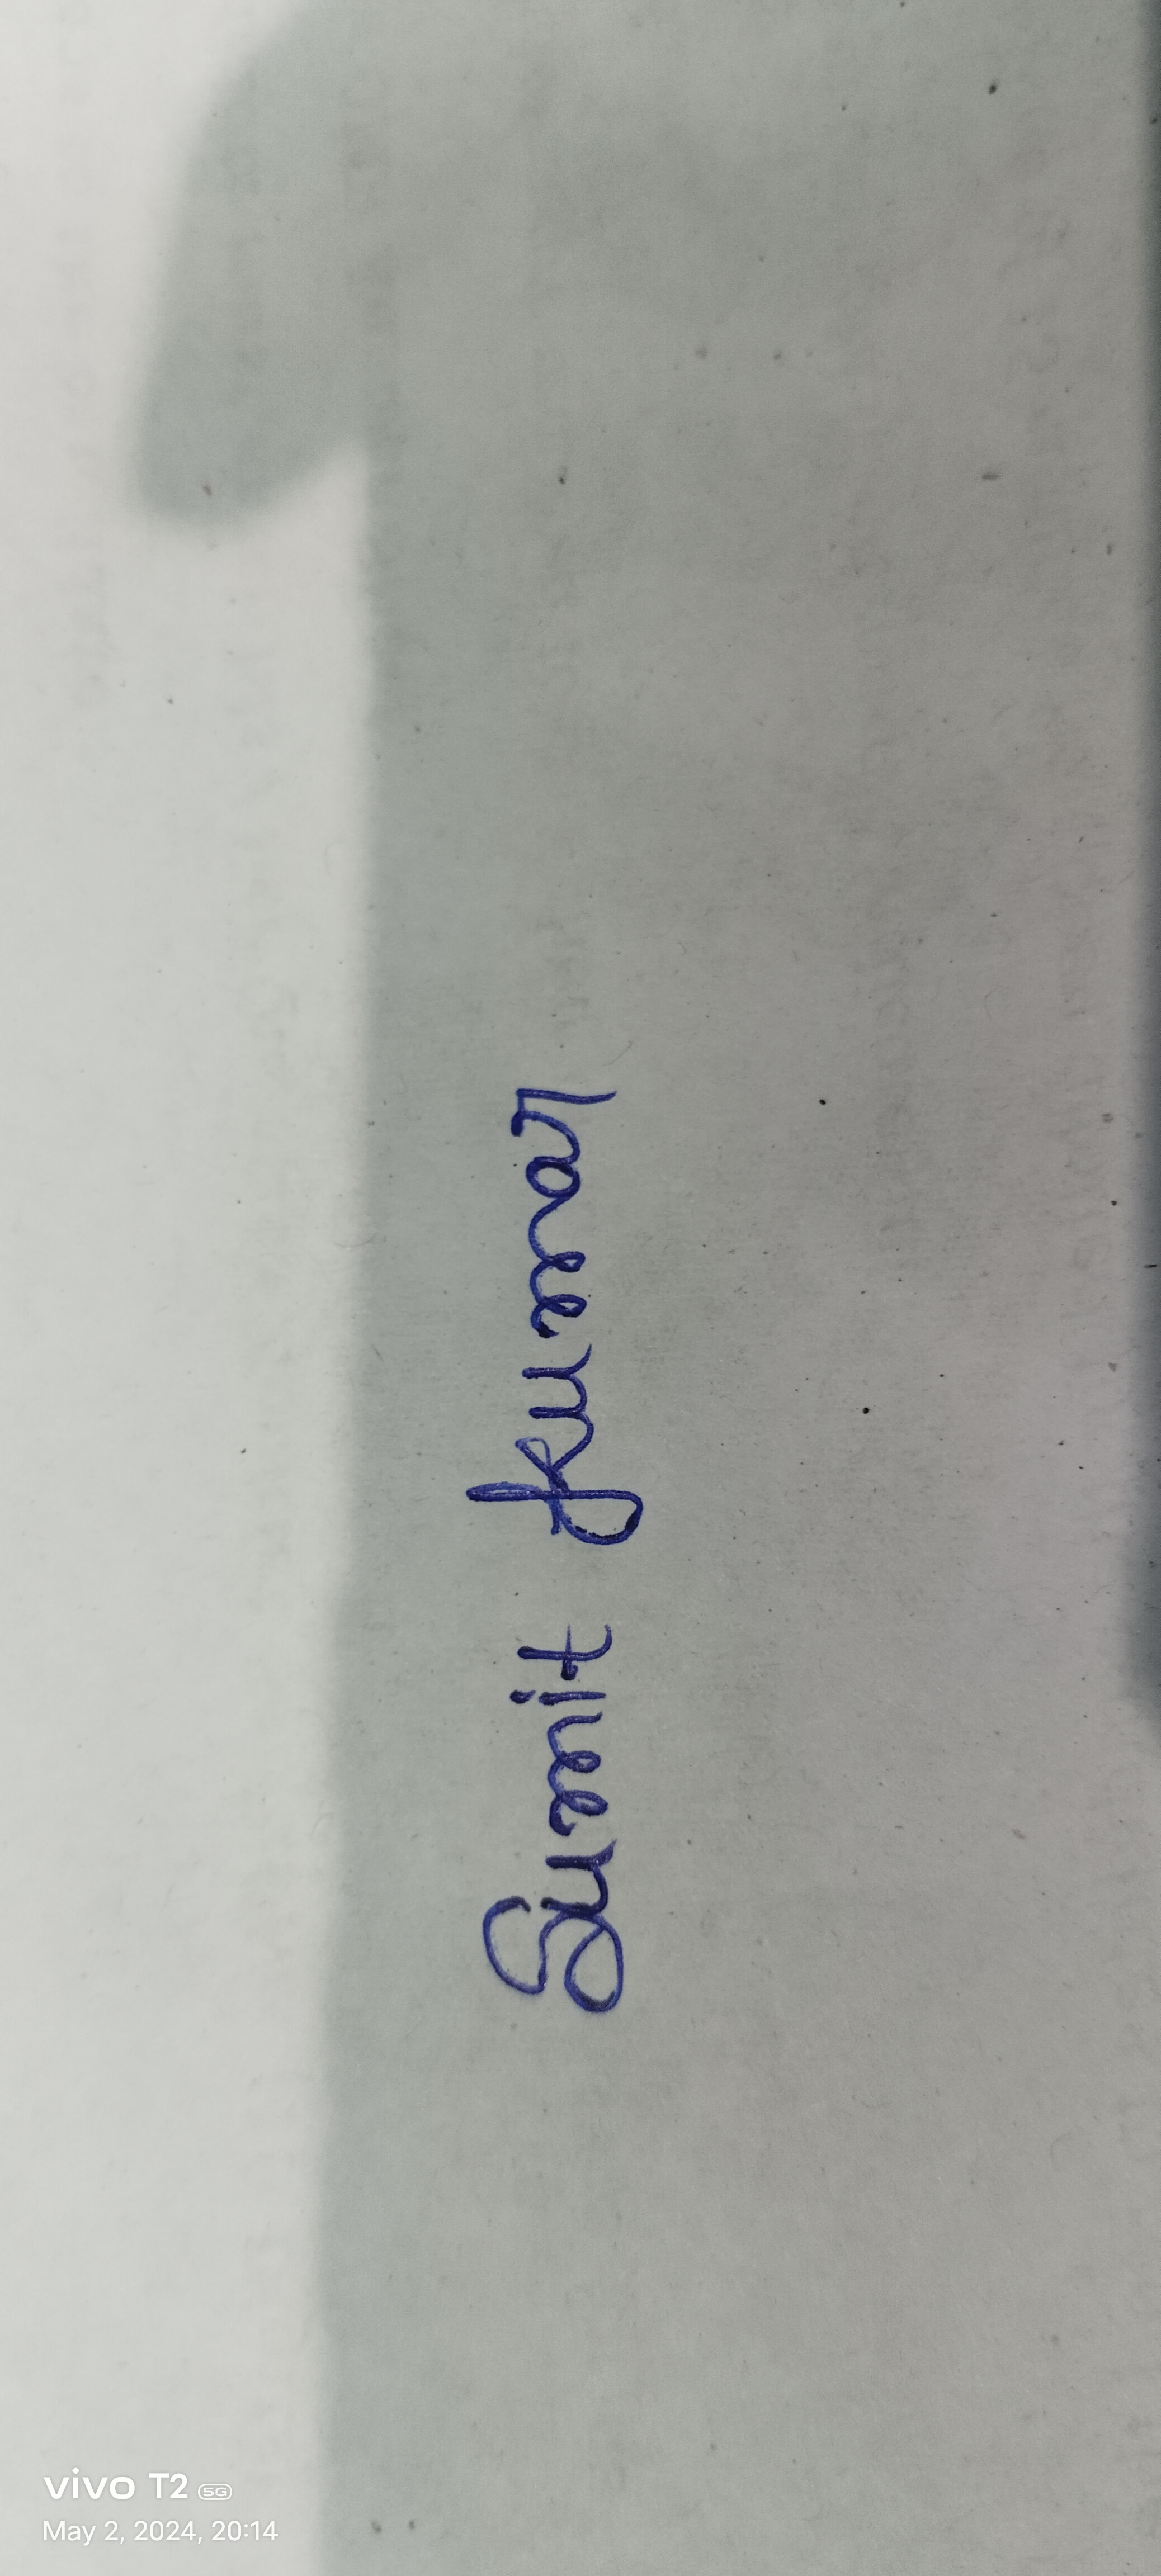 Sumit Kumar
vivo T2 5G
May 2, 2024, 20:14